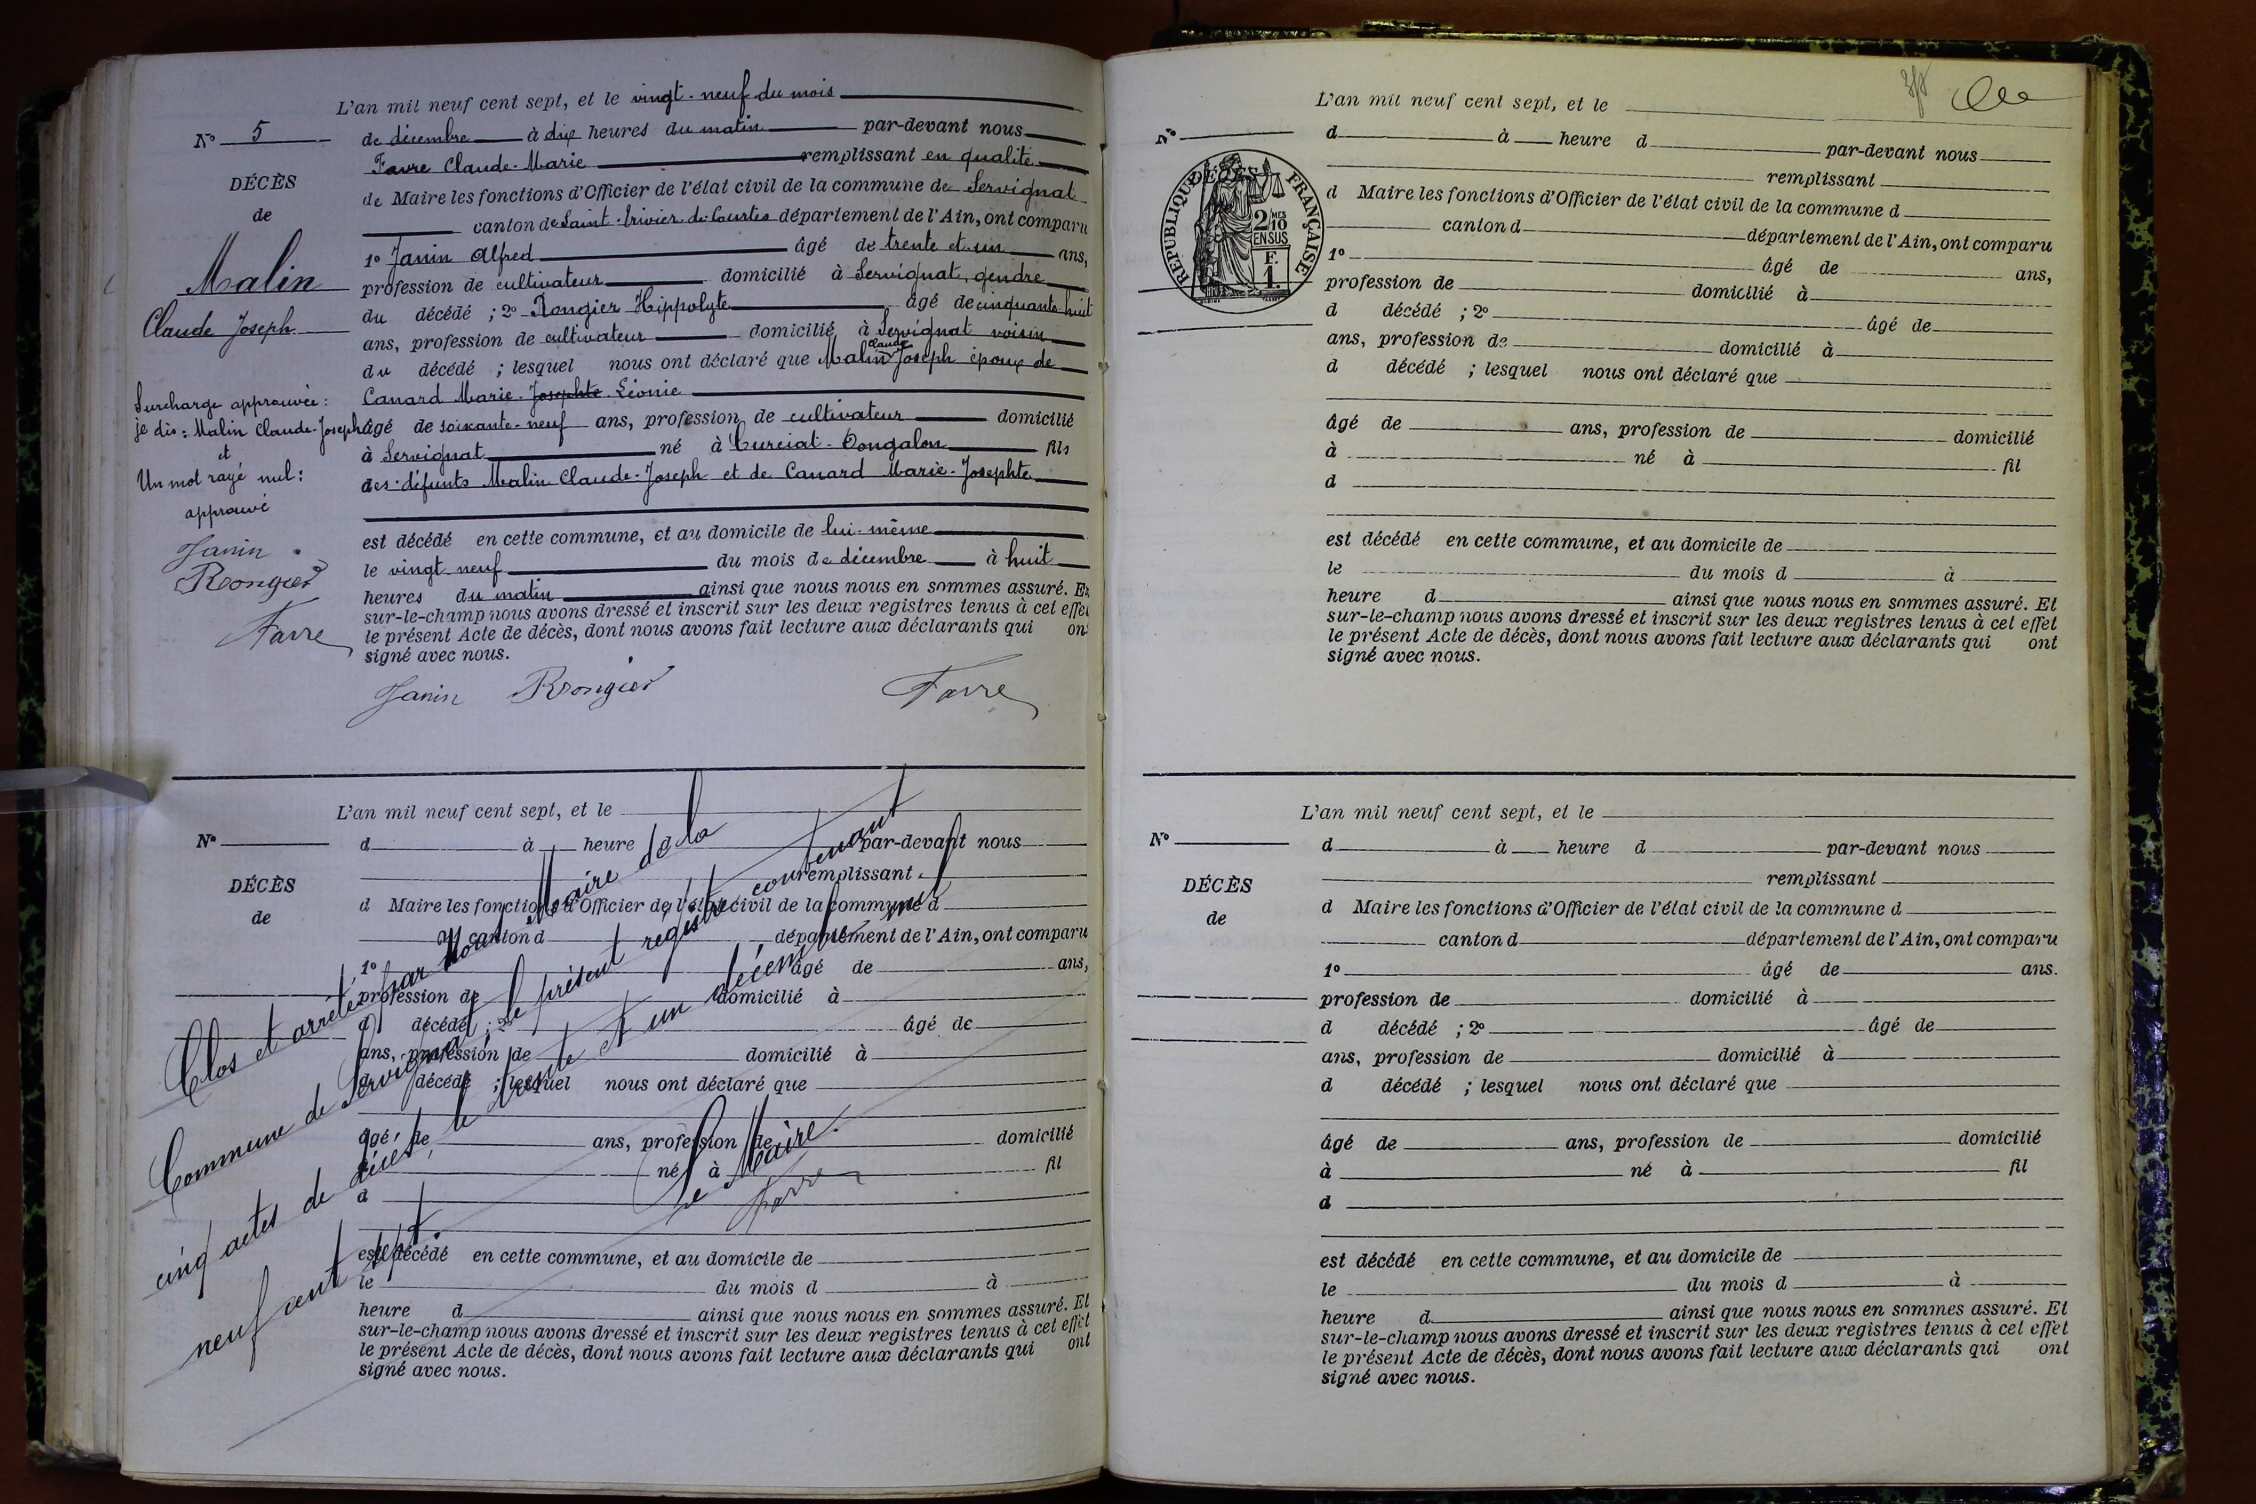 L'an mil neuf cent sept, et le vingt-neuf du mois
N° 5
de décembre à dix heures du matin par-devant nous
Favre Claude-Marie remplissant en qualité
DÉCÈS
de Maire les fonctions d'Officier de l'état civil de la commune de Servignat
de
canton de Saint-Trivier-de-Courtes département de l'Ain, ont comparu
1° Janin Alfred âgé de trente et un ans,
Malin
profession de cultivateur domicilié à Servignat, gendre
du décédé ; 2° Rongier Hippolyte âgé de cinquante-huit
Claude Joseph
ans, profession de cultivateur domicilié à Servignat voisin
claude
du décédé ; lesquel nous ont déclaré que Malin Joseph époux de
Canard Marie-Josephte Léonie
Surcharge approuvée :
je dis : Malin Claude-Joseph
âgé de soixante-neuf ans, profession de cultivateur domicilié
et
à Servignat né à Curciat-Dongalon fils
Un mot rayé nul :
des défunts Malin Claude-Joseph et de Canard Marie-Josephte
approuvé
est décédé en cette commune, et au domicile de lui-même
Janin
le vingt-neuf du mois de décembre à huit
Rongier
heures du matin ainsi que nous nous en sommes assuré. Et
sur-le-champ nous avons dressé et inscrit sur les deux registres tenus à cet effet
Favre
le présent Acte de décès, dont nous avons fait lecture aux déclarants qui ont
signé avec nous.
Janin Rongier Favre
L'an mil neuf cent sept, et le
N°
d à heure d par-devant nous
remplissant
DÉCÈS
d Maire les fonctions d'Officier de l'état civil de la commune d
de
canton d département de l'Ain, ont comparu
1° âgé de ans,
profession de domicilié à
d décédé ; 2° âgé de
ans, profession de domicilié à
d décédé ; lesquel nous ont déclaré que
âgé de ans, profession de domicilié
à né à fil
d
est décédé en cette commune, et au domicile de
le du mois d à
heure d ainsi que nous nous en sommes assuré. Et
sur-le-champ nous avons dressé et inscrit sur les deux registres tenus à cet effet
le présent Acte de décès, dont nous avons fait lecture aux déclarants qui ont
signé avec nous.
Clos et arrêté par Nous, Maire de la
Commune de Servignat, le présent registre contenant
cinq actes de décès, le trente et un décembre mil
neuf cent sept.
Le Maire.
Favre
L'an mil neuf cent sept, et le
N°
d à heure d par-devant nous
remplissant
DÉCÈS
RÉPUBLIQUE FRANÇAISE
2/10
MES
EN SUS
F.
1.
d Maire les fonctions d'Officier de l'état civil de la commune d
canton d département de l'Ain, ont comparu
1° âgé de ans,
profession de domicilié à
d décédé ; 2° âgé de
ans, profession de domicilié à
d décédé ; lesquel nous ont déclaré que
âgé de ans, profession de domicilié
à né à fil
d
est décédé en cette commune, et au domicile de
le du mois d à
heure d ainsi que nous nous en sommes assuré. Et
sur-le-champ nous avons dressé et inscrit sur les deux registres tenus à cet effet
le présent Acte de décès, dont nous avons fait lecture aux déclarants qui ont
signé avec nous.
L'an mil neuf cent sept, et le
N°
d à heure d par-devant nous
remplissant
DÉCÈS
d Maire les fonctions d'Officier de l'état civil de la commune d
de
canton d département de l'Ain, ont comparu
1° âgé de ans.
profession de domicilié à
d décédé ; 2° âgé de
ans, profession de domicilié à
d décédé ; lesquel nous ont déclaré que
âgé de ans, profession de domicilié
à né à fil
d
est décédé en cette commune, et au domicile de
le du mois d à
heure d ainsi que nous nous en sommes assuré. Et
sur-le-champ nous avons dressé et inscrit sur les deux registres tenus à cet effet
le présent Acte de décès, dont nous avons fait lecture aux déclarants qui ont
signé avec nous.